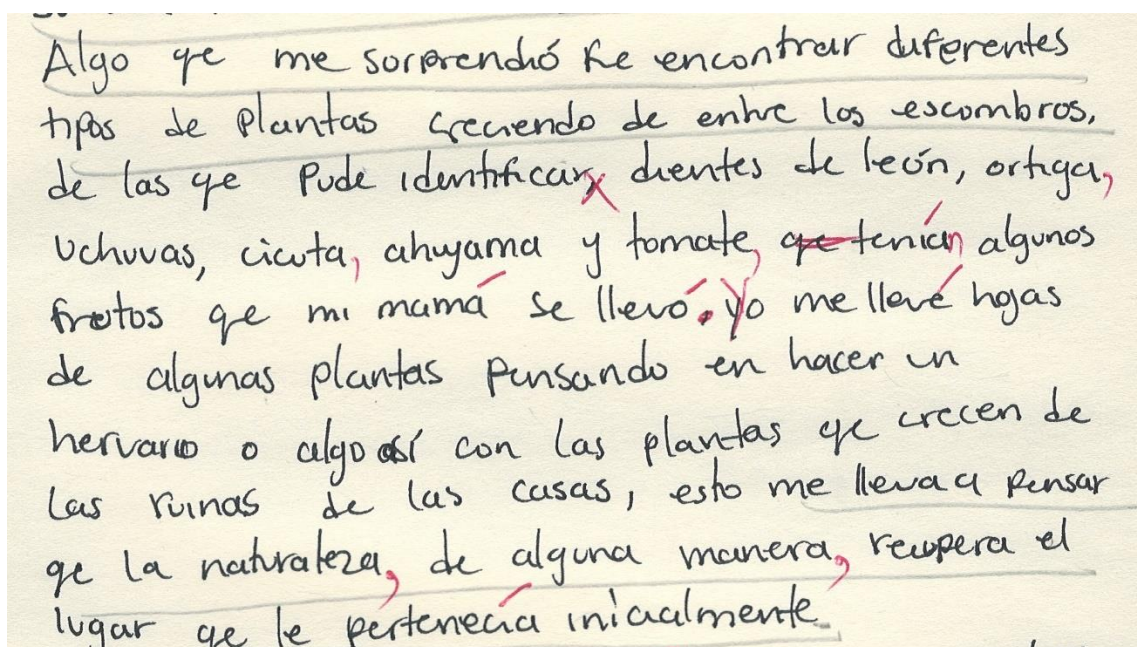 Algo qe me sorprendió fue encontrar diferentes
tipos de plantas creciendo de entre los escombros,
de las qe pude identificar dientes de león, ortiga,
uchuvas, cicuta, ahuyama y tomate, tenían algunos
frutos qe mi mamá se llevó. Yo me llevé hojas
de algunas plantas pensando en hacer un
hervario o algo así con las plantas qe crecen de
las ruinas de las casas, esto me lleva a pensar
qe la naturaleza, de alguna manera, recupera el
lugar qe le pertenecía inicialmente.